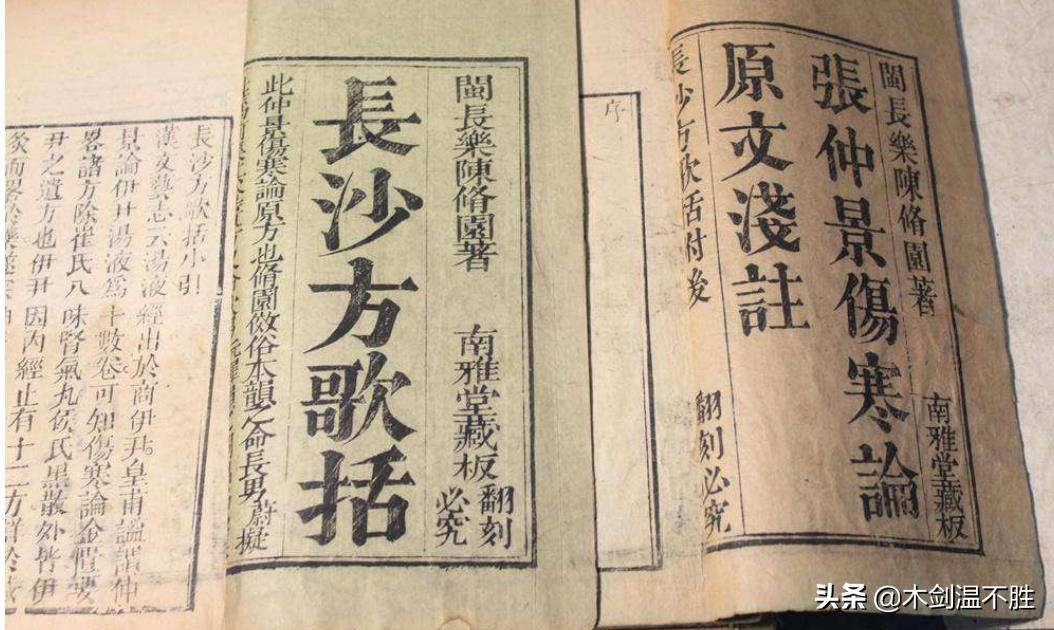 閩長樂陳脩園著
南雅堂藏板
張仲景傷寒論
原文淺註
長沙方歌括附後
翻刻必究
序
閩長樂陳脩園著
南雅堂藏板
翻刻
必究
長沙方歌括
此仲景傷寒論原方也脩園倣俗本韻之命長男蔚擬
長沙方歌括小引
漢文藝志云湯液經出於商伊尹皇甫謐謂仲
景論伊尹湯液為十數卷可知傷寒論金匱要
畧諸方除崔氏八味腎氣丸侯氏黑散外皆伊
尹之遺方也伊尹因內經止有十二方詳於
灸而畧於藥遂
头条 @木剑温不胜